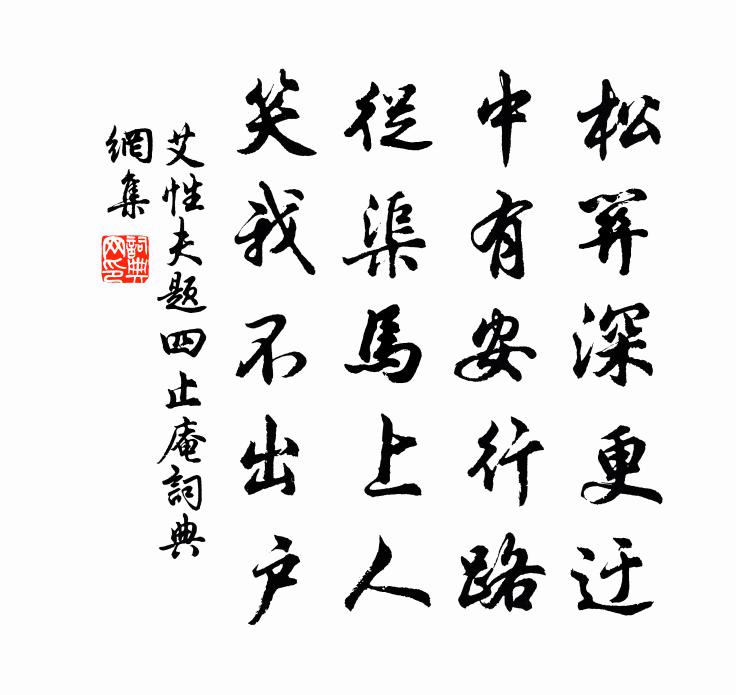 松關深更迂
中有安行路
從渠馬上人
笑我不出户
艾性夫題四止庵詞典
網集
詞典
网印